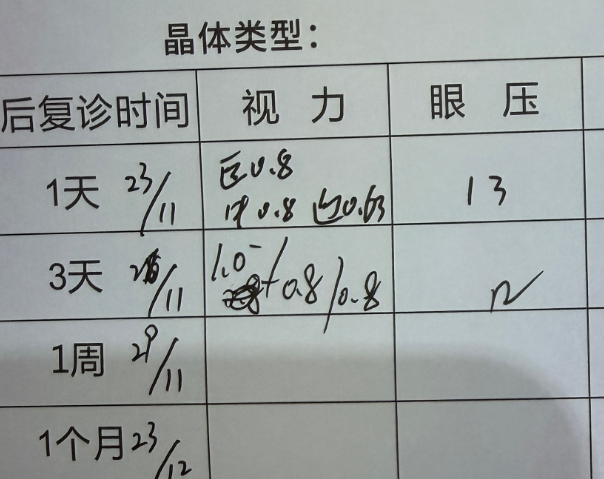 晶体类型：
后复诊时间 视力 眼压
1天 23/11 远0.8 13
中0.8 近0.63
3天 26/11 1.0⁻/0.8/0.8 12
1周 29/11
1个月 23/12